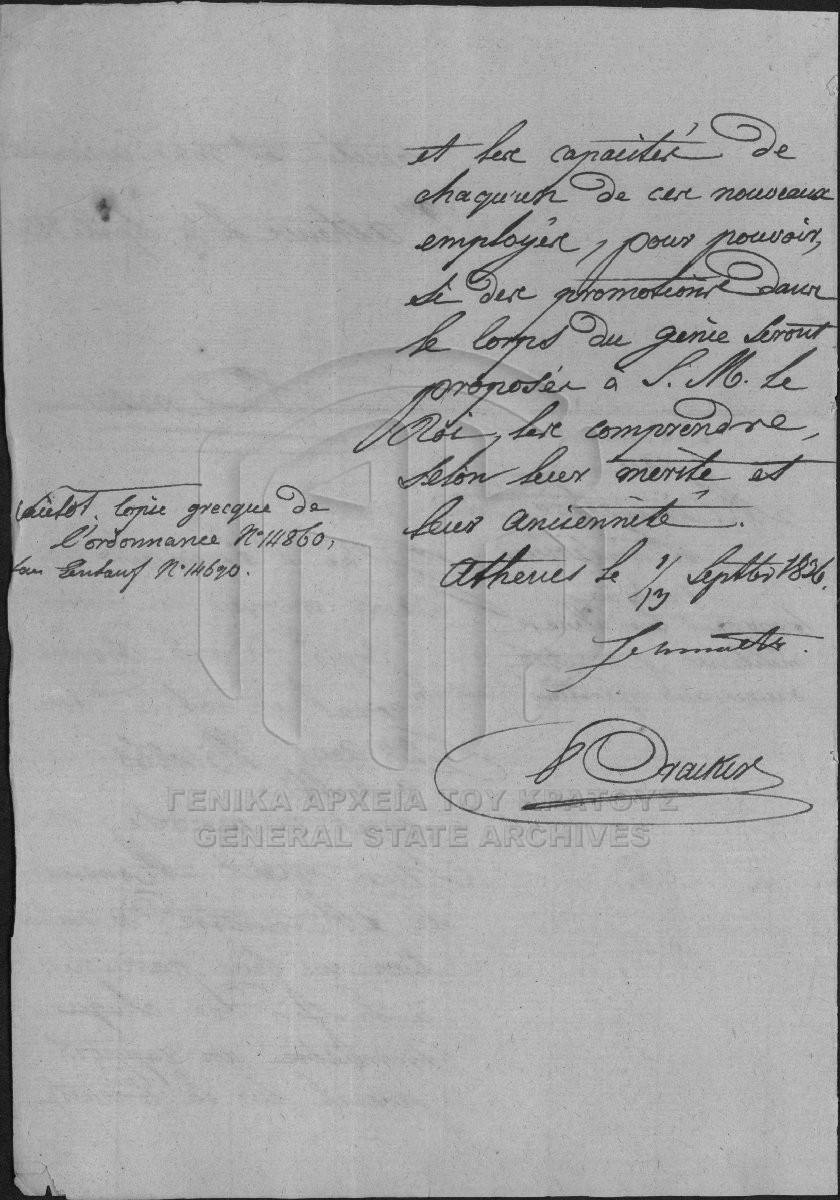 et les capacités de
chaqu'un de ces nouveaux
employés, pour pouvoir,
si des promotions dans
le Corps du génie seront
proposés à S. M. le
Roi, les comprendre,
selon leur mérite et
leur ancienneté.
Athenes le 1/13 Septbr 1836.
copie grecque de
l'ordonnance No 14860,
No 14690.
ΓΕΝΙΚΑ ΑΡΧΕΙΑ ΤΟΥ ΚΡΑΤΟΥΣ
GENERAL STATE ARCHIVES